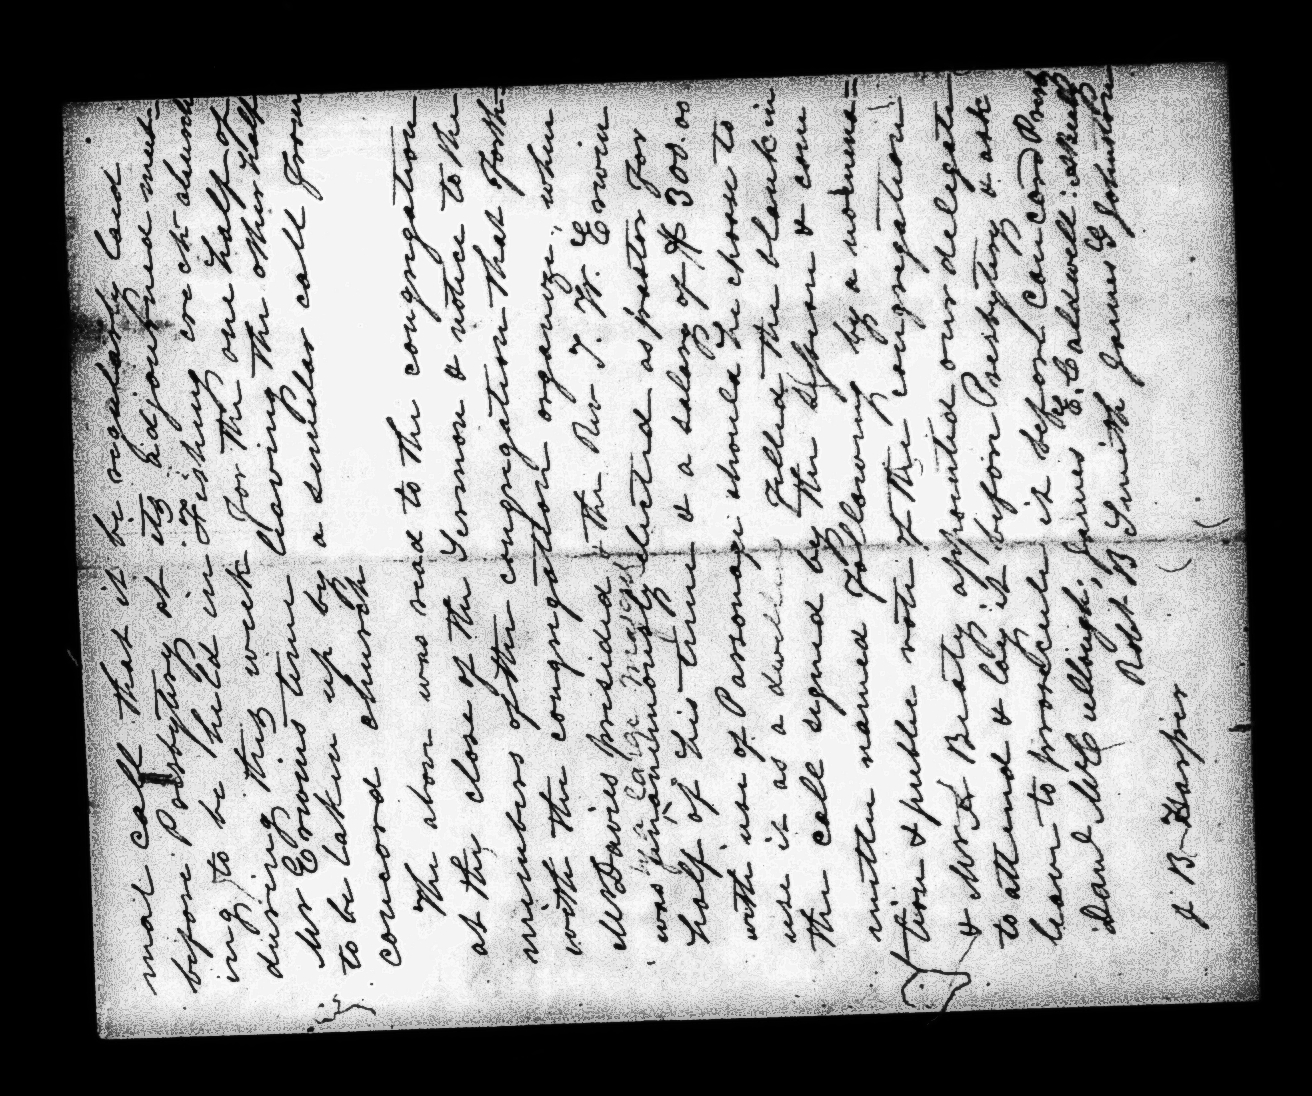 mal call that it be regularly laid
before Presbytery at its adjourned meet-
ing, to be held in Fishing creek church
during this week for the one half of
Mr Erwins time leaving the other half
to be taken up by a similar call from
concord church
The above was read to the congregation
at the close of the Sermon & notice to the
members of the congregation that forth-
with the congregation organize, when
Mr Davies presided & the Rev T. W. Erwin
was unanimously elected as pastor for
by a large majority
half of his time & a salary of $ 300.00
with use of Parsonage should he choose to
use it as a dwelling filled the blank in
the call signed by the Session & com
mittee named following by a nomina=
tion & public vote of the congregation
& Mr Beaty appointed our delegate
to attend & lay it before Presbytery & ask
leave to prosecute it before Concord Pres
David McCullough, James E. Caldwell
Robt B Smith James G Johnston
J B Harper